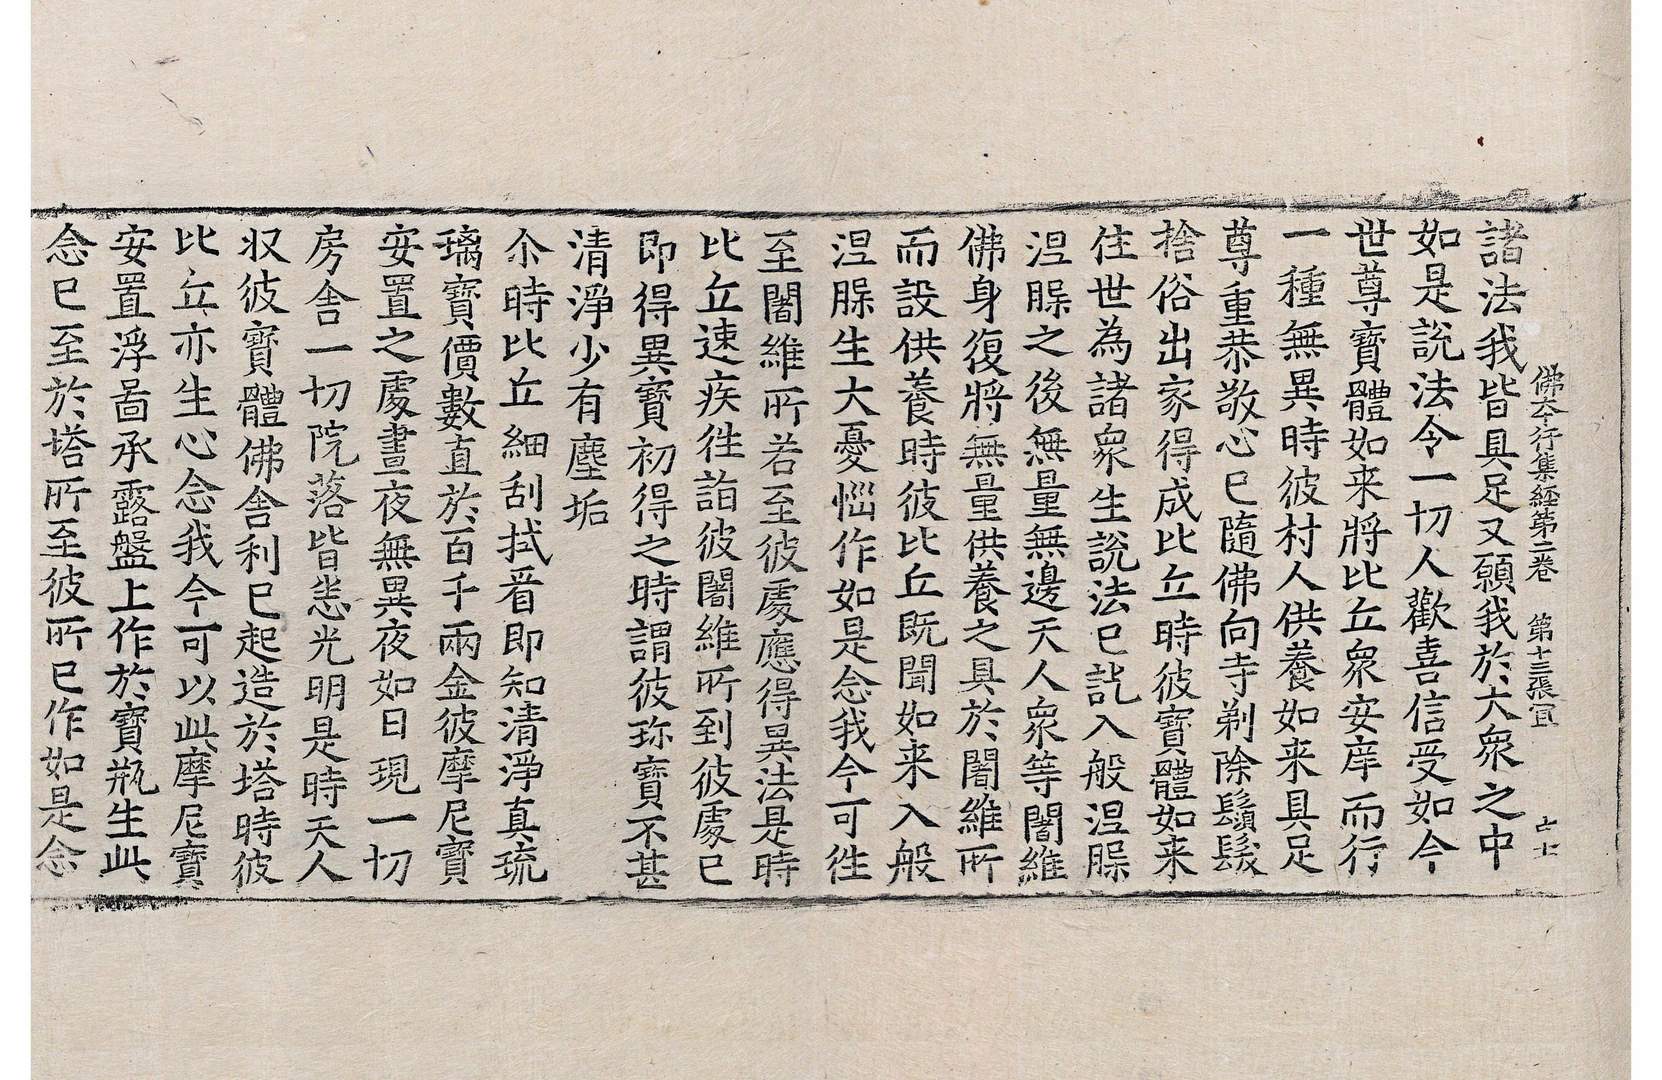 佛本行集経第二卷 第十三張 官
諸法我皆具足又願我於大衆之中
如是說法令一切人歡喜信受如今
世尊寶體如来將比丘衆安庠而行
一種無異時彼村人供養如来具足
尊重恭敬心已隨佛向寺剃除鬚髮
捨俗出家得成比丘時彼寶體如来
住世為諸衆生說法已訖入般涅槃
涅槃之後無量無邊天人衆等闍維
佛身復將無量供養之具於闍維所
而設供養時彼比丘既聞如来入般
涅槃生大憂惱作如是念我今可徃
至闍維所若至彼處應得異法是時
比丘速疾徃詣彼闍維所到彼處已
即得異寶初得之時謂彼珎寶不甚
清淨少有塵垢
尒時比丘細刮拭看即知清淨真琉
璃寶價數直於百千兩金彼摩尼寶
安置之處晝夜無異夜如日現一切
房舍一切院落皆悉光明是時天人
収彼寶體佛舍利已起造於塔時彼
比丘亦生心念我今可以此摩尼寶
安置浮啚承露盤上作於寶瓶生此
念已至於塔所至彼所已作如是念